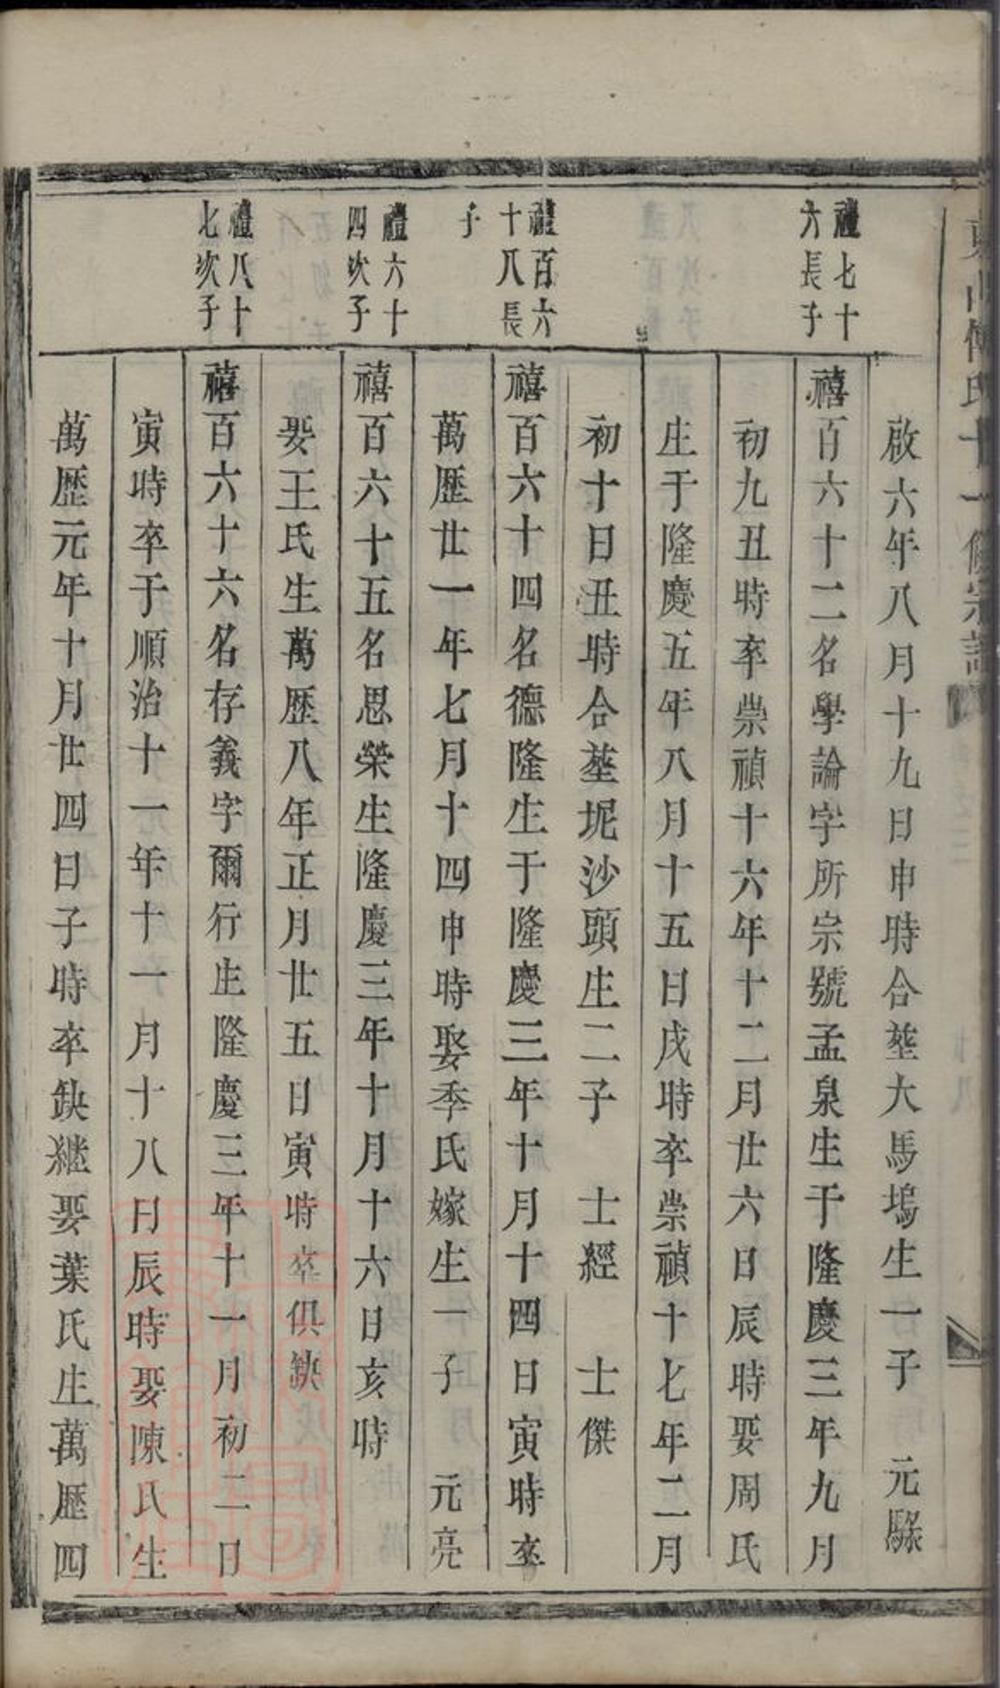 啟六年八月十九日申時合塟大馬塢生一子　元騄
禮七十
六長子
禧百六十二名學論字所宗號孟泉生于隆慶三年九月
初九丑時卒崇禎十六年十二月廿六日辰時娶周氏
生于隆慶五年八月十五日戌時卒崇禎十七年二月
初十日丑時合塟坭沙頭生二子　士經　士傑
禮百六
十八長
子
禧百六十四名德隆生于隆慶三年十月十四日寅時卒
萬歷廿一年七月十四申時娶季氏嫁生一子　元亮
禮六十
四次子
禧百六十五名思榮生隆慶三年十月十六日亥時
娶王氏生萬歷八年正月廿五日寅時卒俱缺
禮八十
七次子
禧百六十六名存義字爾行生隆慶三年十一月初二日
寅時卒于順治十一年十一月十八日辰時娶陳氏生
萬歷元年十月廿四日子時卒缺継娶葉氏生萬歷四